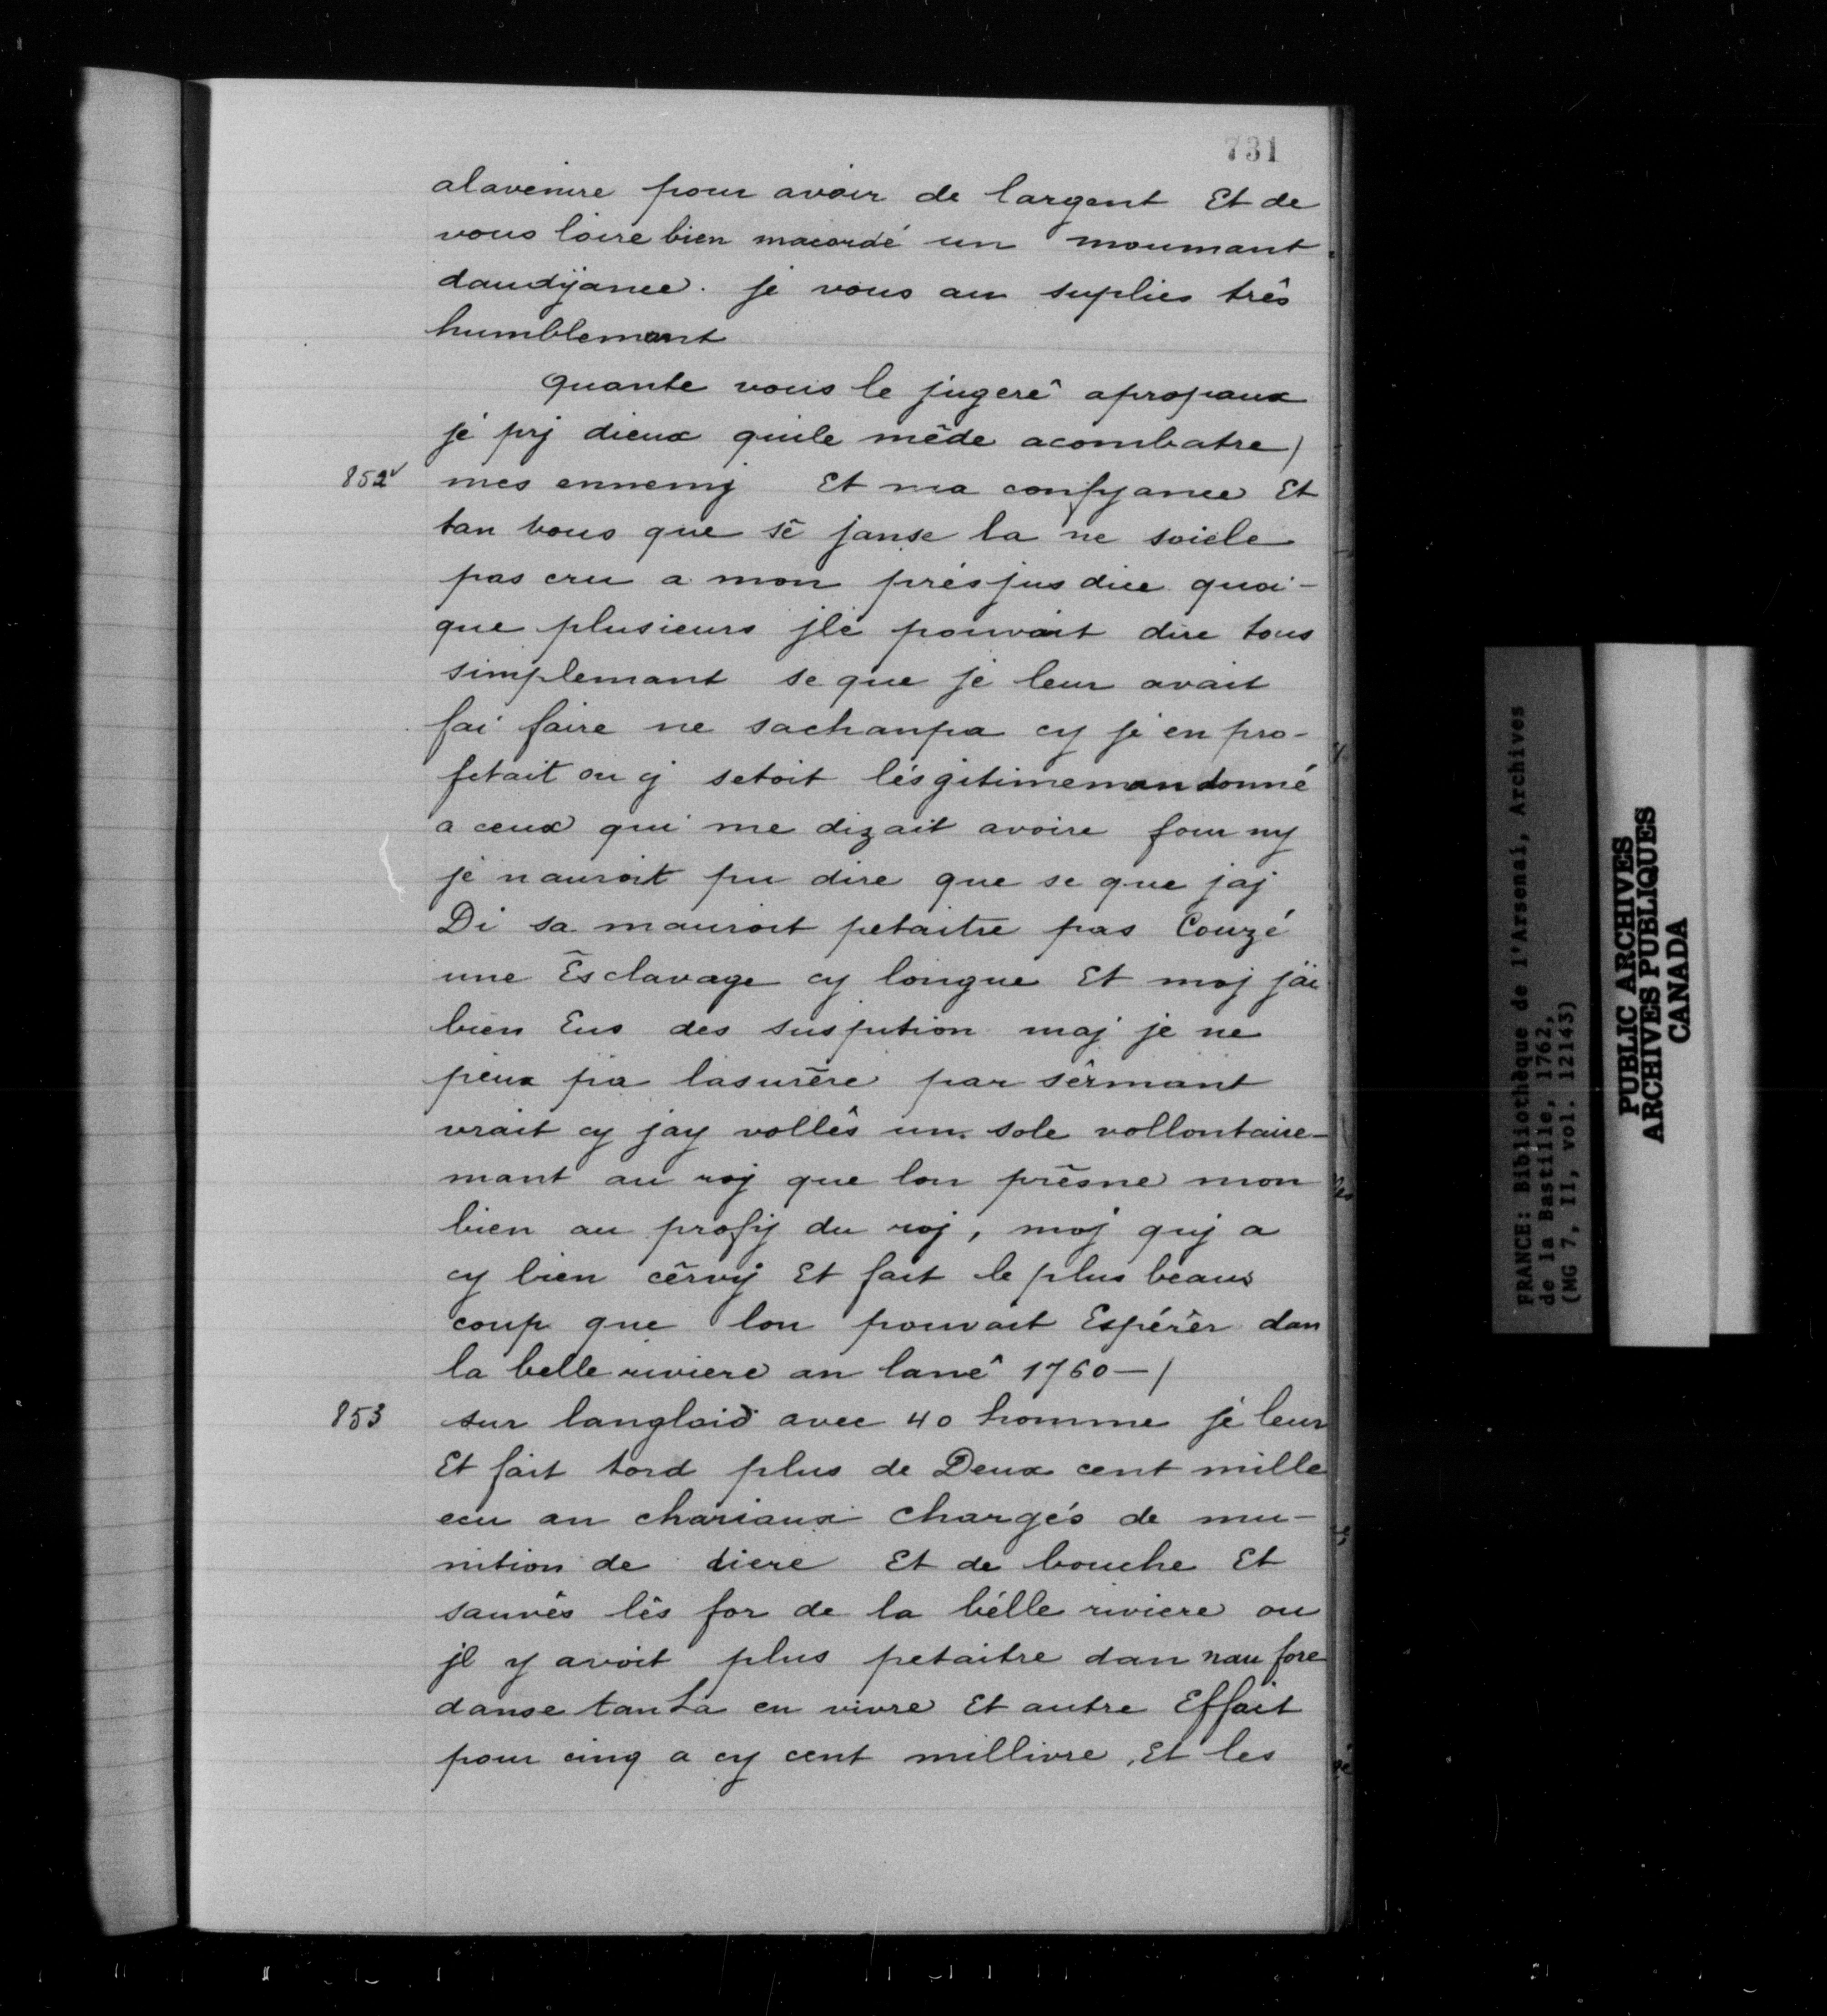 731
alavenire pour avoir de largent Et de
vous loire bien macordé un moumant
daudÿance. je vous an suplies três
humblemant
quante vous le jugerê apropaux
jé prj dieux quile mêde acombatre /
852v mes ennemj Et ma confyance Et
tan vous que sê janse la ne soiele
pas cru a mon présjusdice quoi-
que plusieurs jlé pouvait dire tous
simplemant se que jé leur avait
fai faire ne sachanpa cy jé en pro-
fetait ou cj setoit lésgitimemandonné
a ceux qui me dizait avoire fourny
jé nauroit pu dire que se que jaj
Di sa mauroit petaitre pas Couzé
une Êsclavage cy longue Et moj j'ai
bien Eus des suspution maj je ne
peux pa lasurêre par sêrmant
vrait cy jay vollês un sole vollontaire-
mant au roj que lon prêsne mon
bien au profij du roj, moj quj a
cy bien cêrvÿ Et fait le plus beaus
coup que lon pouvait Espérêr dan
la belle riviere an lanê 1760 — /
853 sur langlaid avec 40 homme jé leur
Et fait tord plus de Deux cent mille
ecu an chariaux chargés de mu-
nition de diere Et de bouche Et
sauvês lês for de la bélle riviere ou
jl y avoit plus petaitre dan nau fore
danse tanLa en vivre Et autre Effait
pour cinq a cy cent millivre, Et les
FRANCE: Bibliothèque de l'Arsenal, Archives
de la Bastille, 1762,
(MG 7, II, vol. 12143)
PUBLIC ARCHIVES
ARCHIVES PUBLIQUES
CANADA